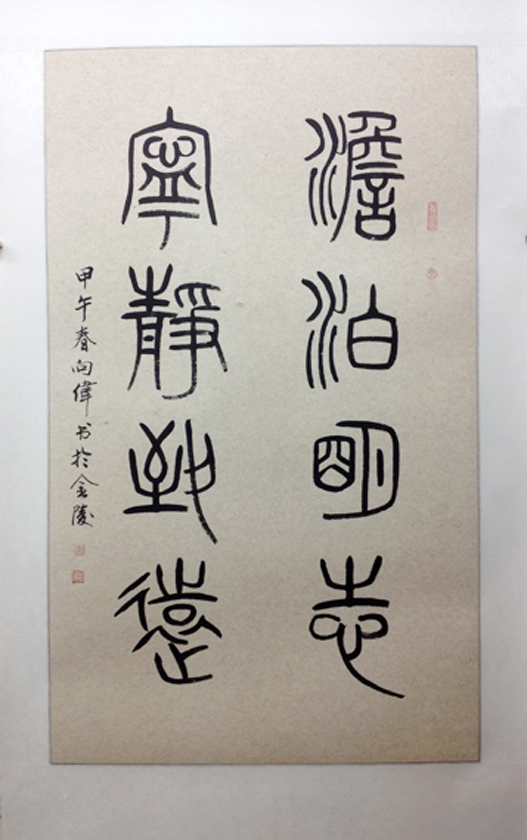 澹泊明志
寧靜致遠
甲午春向偉书於金陵